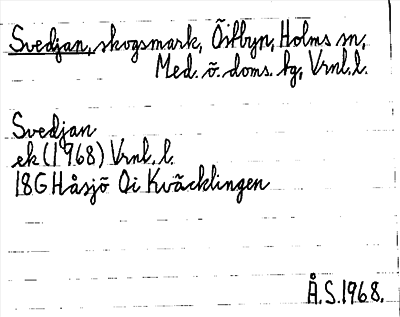 Svedjan, skogsmark, Östbyn, Holms sn,
Med. ö. doms. tg, Vrnl.l.
Svedjan
ek (1968) Vrnl. l.
18G Håsjö Oi Kväcklingen
Å.S.1968.